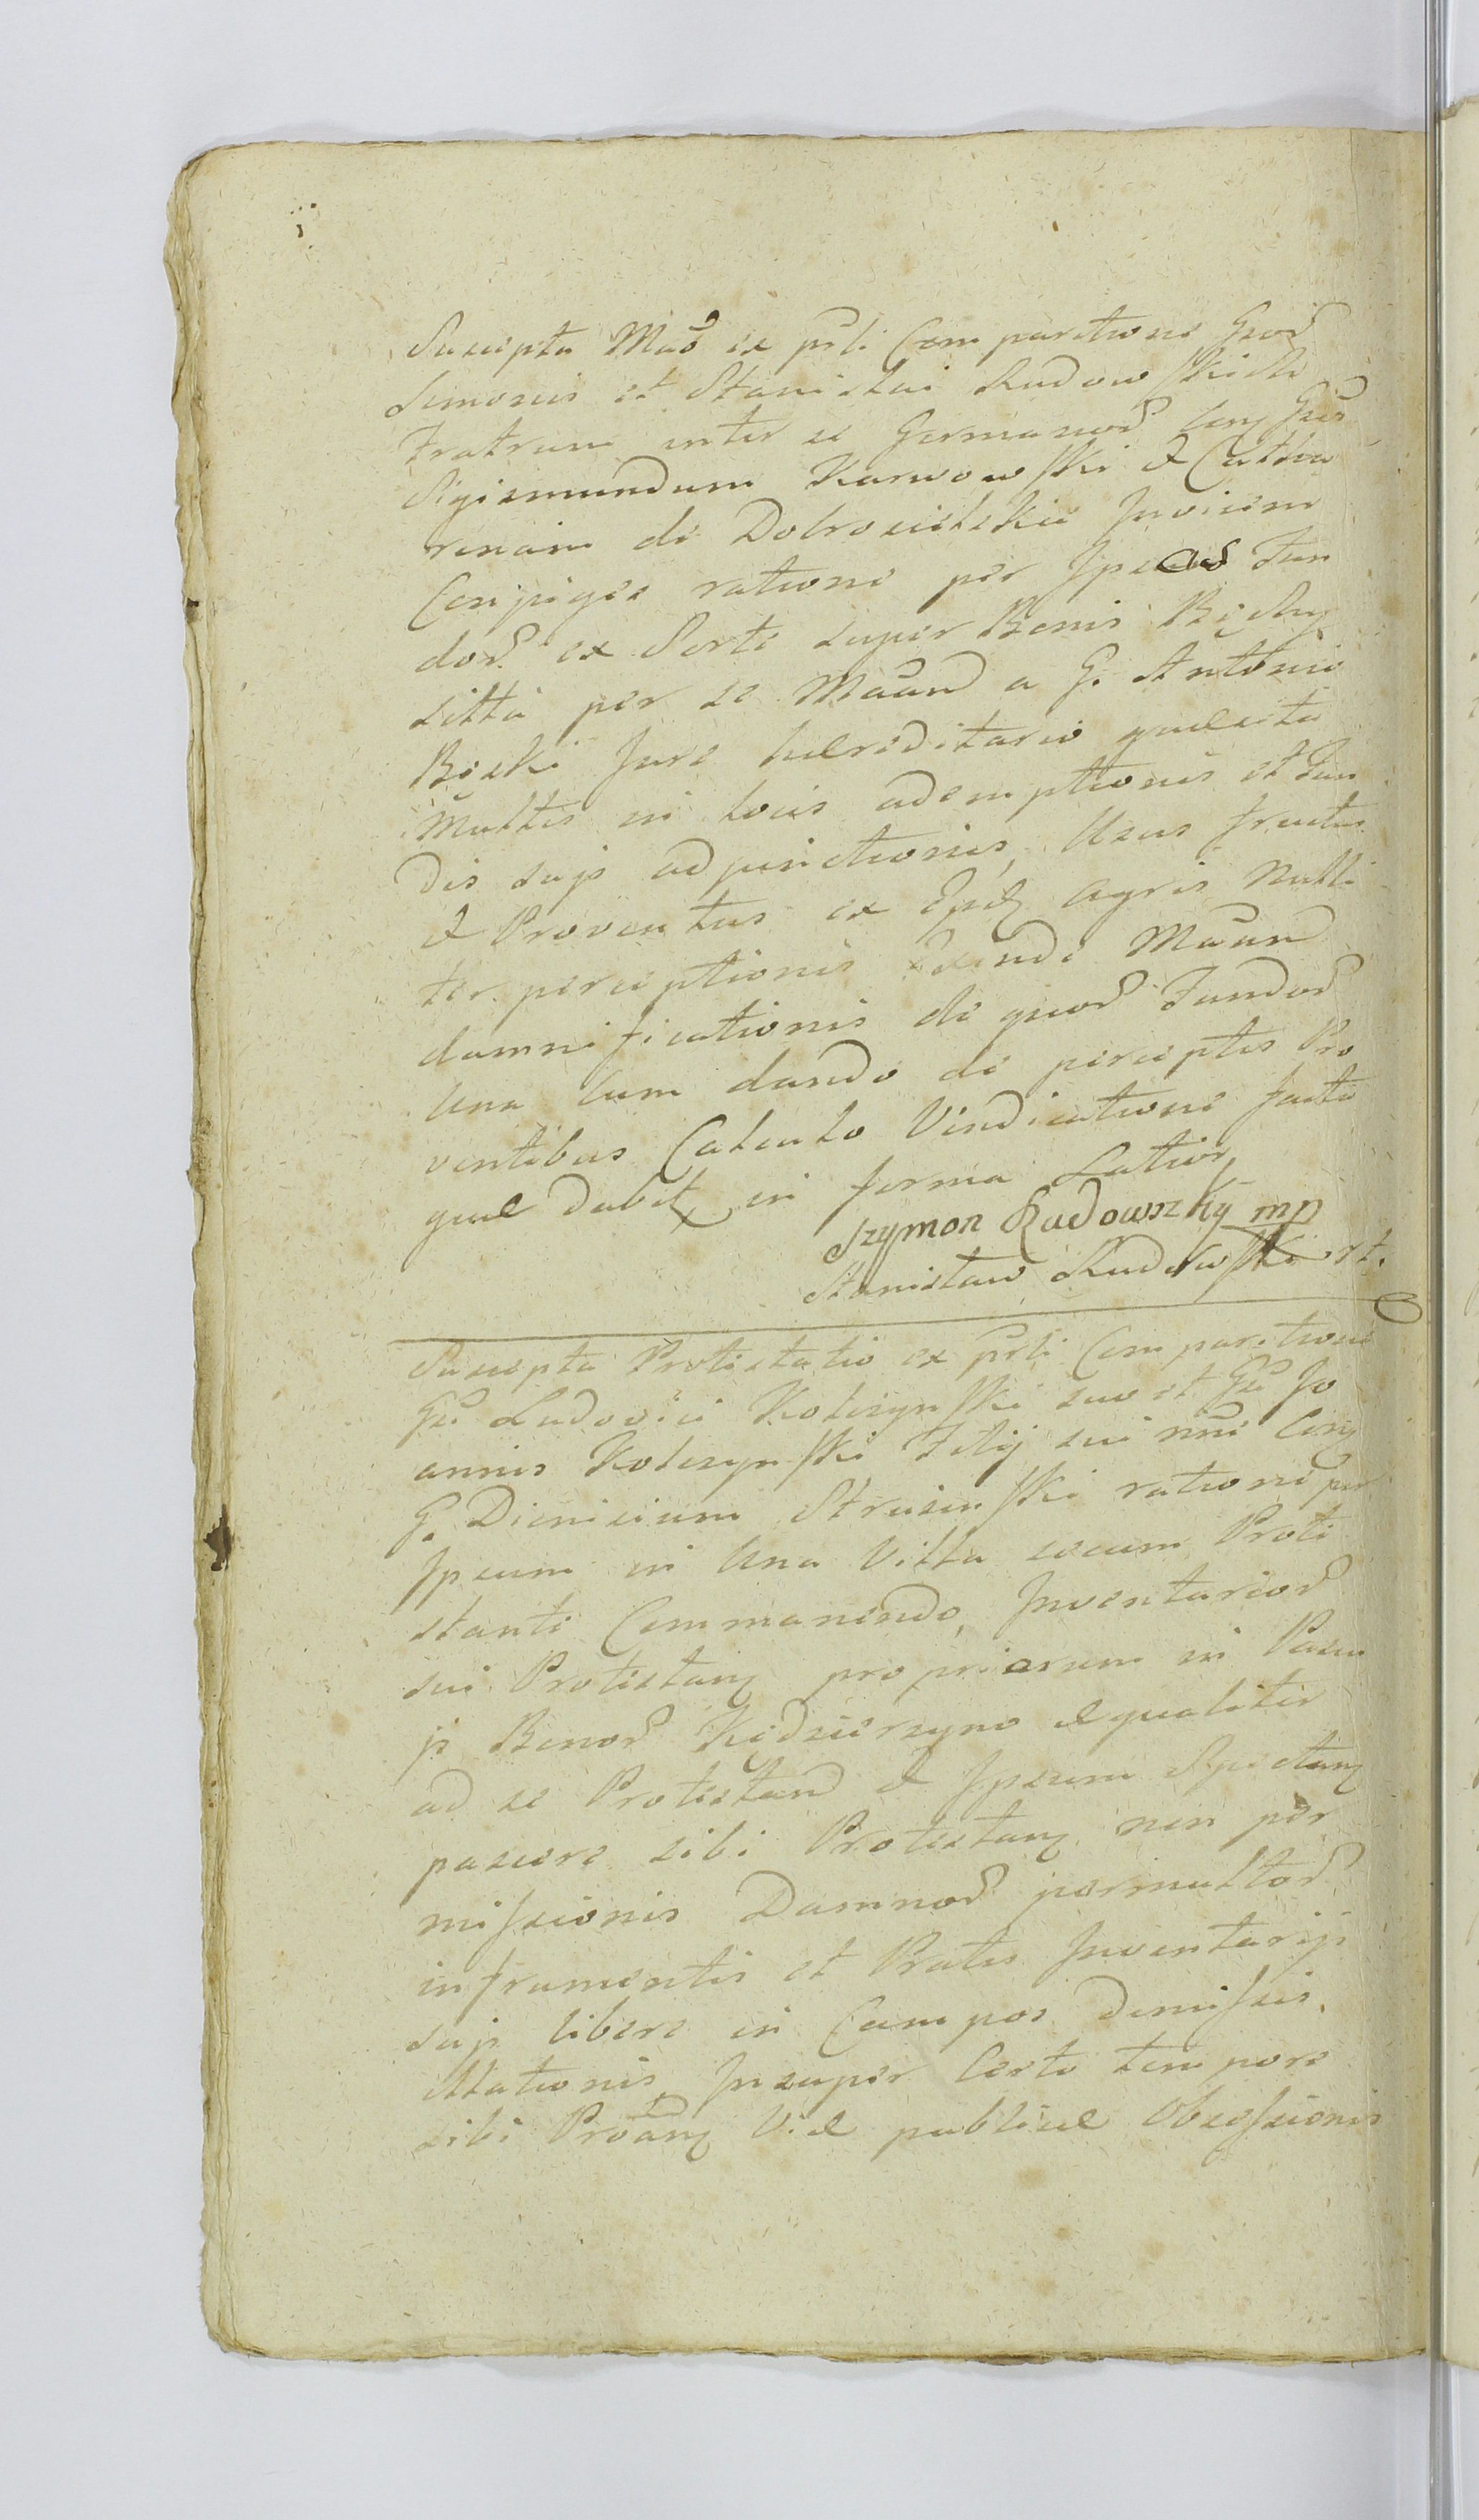 Suscepta Mãõ ex prli Comparitione Gror
Simonis et Stanislai Rudowskich
Fratrum inter se Germanor Cony Gros
Sigismundum Karwowski & Catha
renam de Dobrosielskie Invicem
Conjuges ratione per Ipsos Fun
dor ex Sorte super Bonis
sitta per se Maand a G. Antonio
Bęski Jure haereditario quaesita
Multis in locis ademptionis et Fun
dis suis adjunctionis, Usus fructus
& Proventus ex Agris Nulli
ter perceptionis Exinde Maand
damnificationis de quor Fundor
Una Cum dando de perceptis Pro
ventibus Calculo Vindicatione facta
quae dabit in forma Latior
Szymon Rudowszky mp
Stanisław Rudowski

Suscepta Protestatio ex prli Comparitione
Gri Ludovici Kolczynski suo et Gri Jo
annis Kolczynski Filij sui nni Cony
G. Dionisium Strusinski ratione per
Ipsum in Una Villa secum Prote
stante Commanendo, Inventarior
sui Protestany propriorum in Pascu
js Bonor Kędzierzyno aequaliter
ad se Protestand & Ipsum Spectany
pascere sibi Protestany non per
missionis Damnor permultor
in frumentis et Pratis Inventarijs
sujs libere in Campos demissis,
Illationis Insuper Certo tempore
sibi Proany Viae publicae Obsessionis